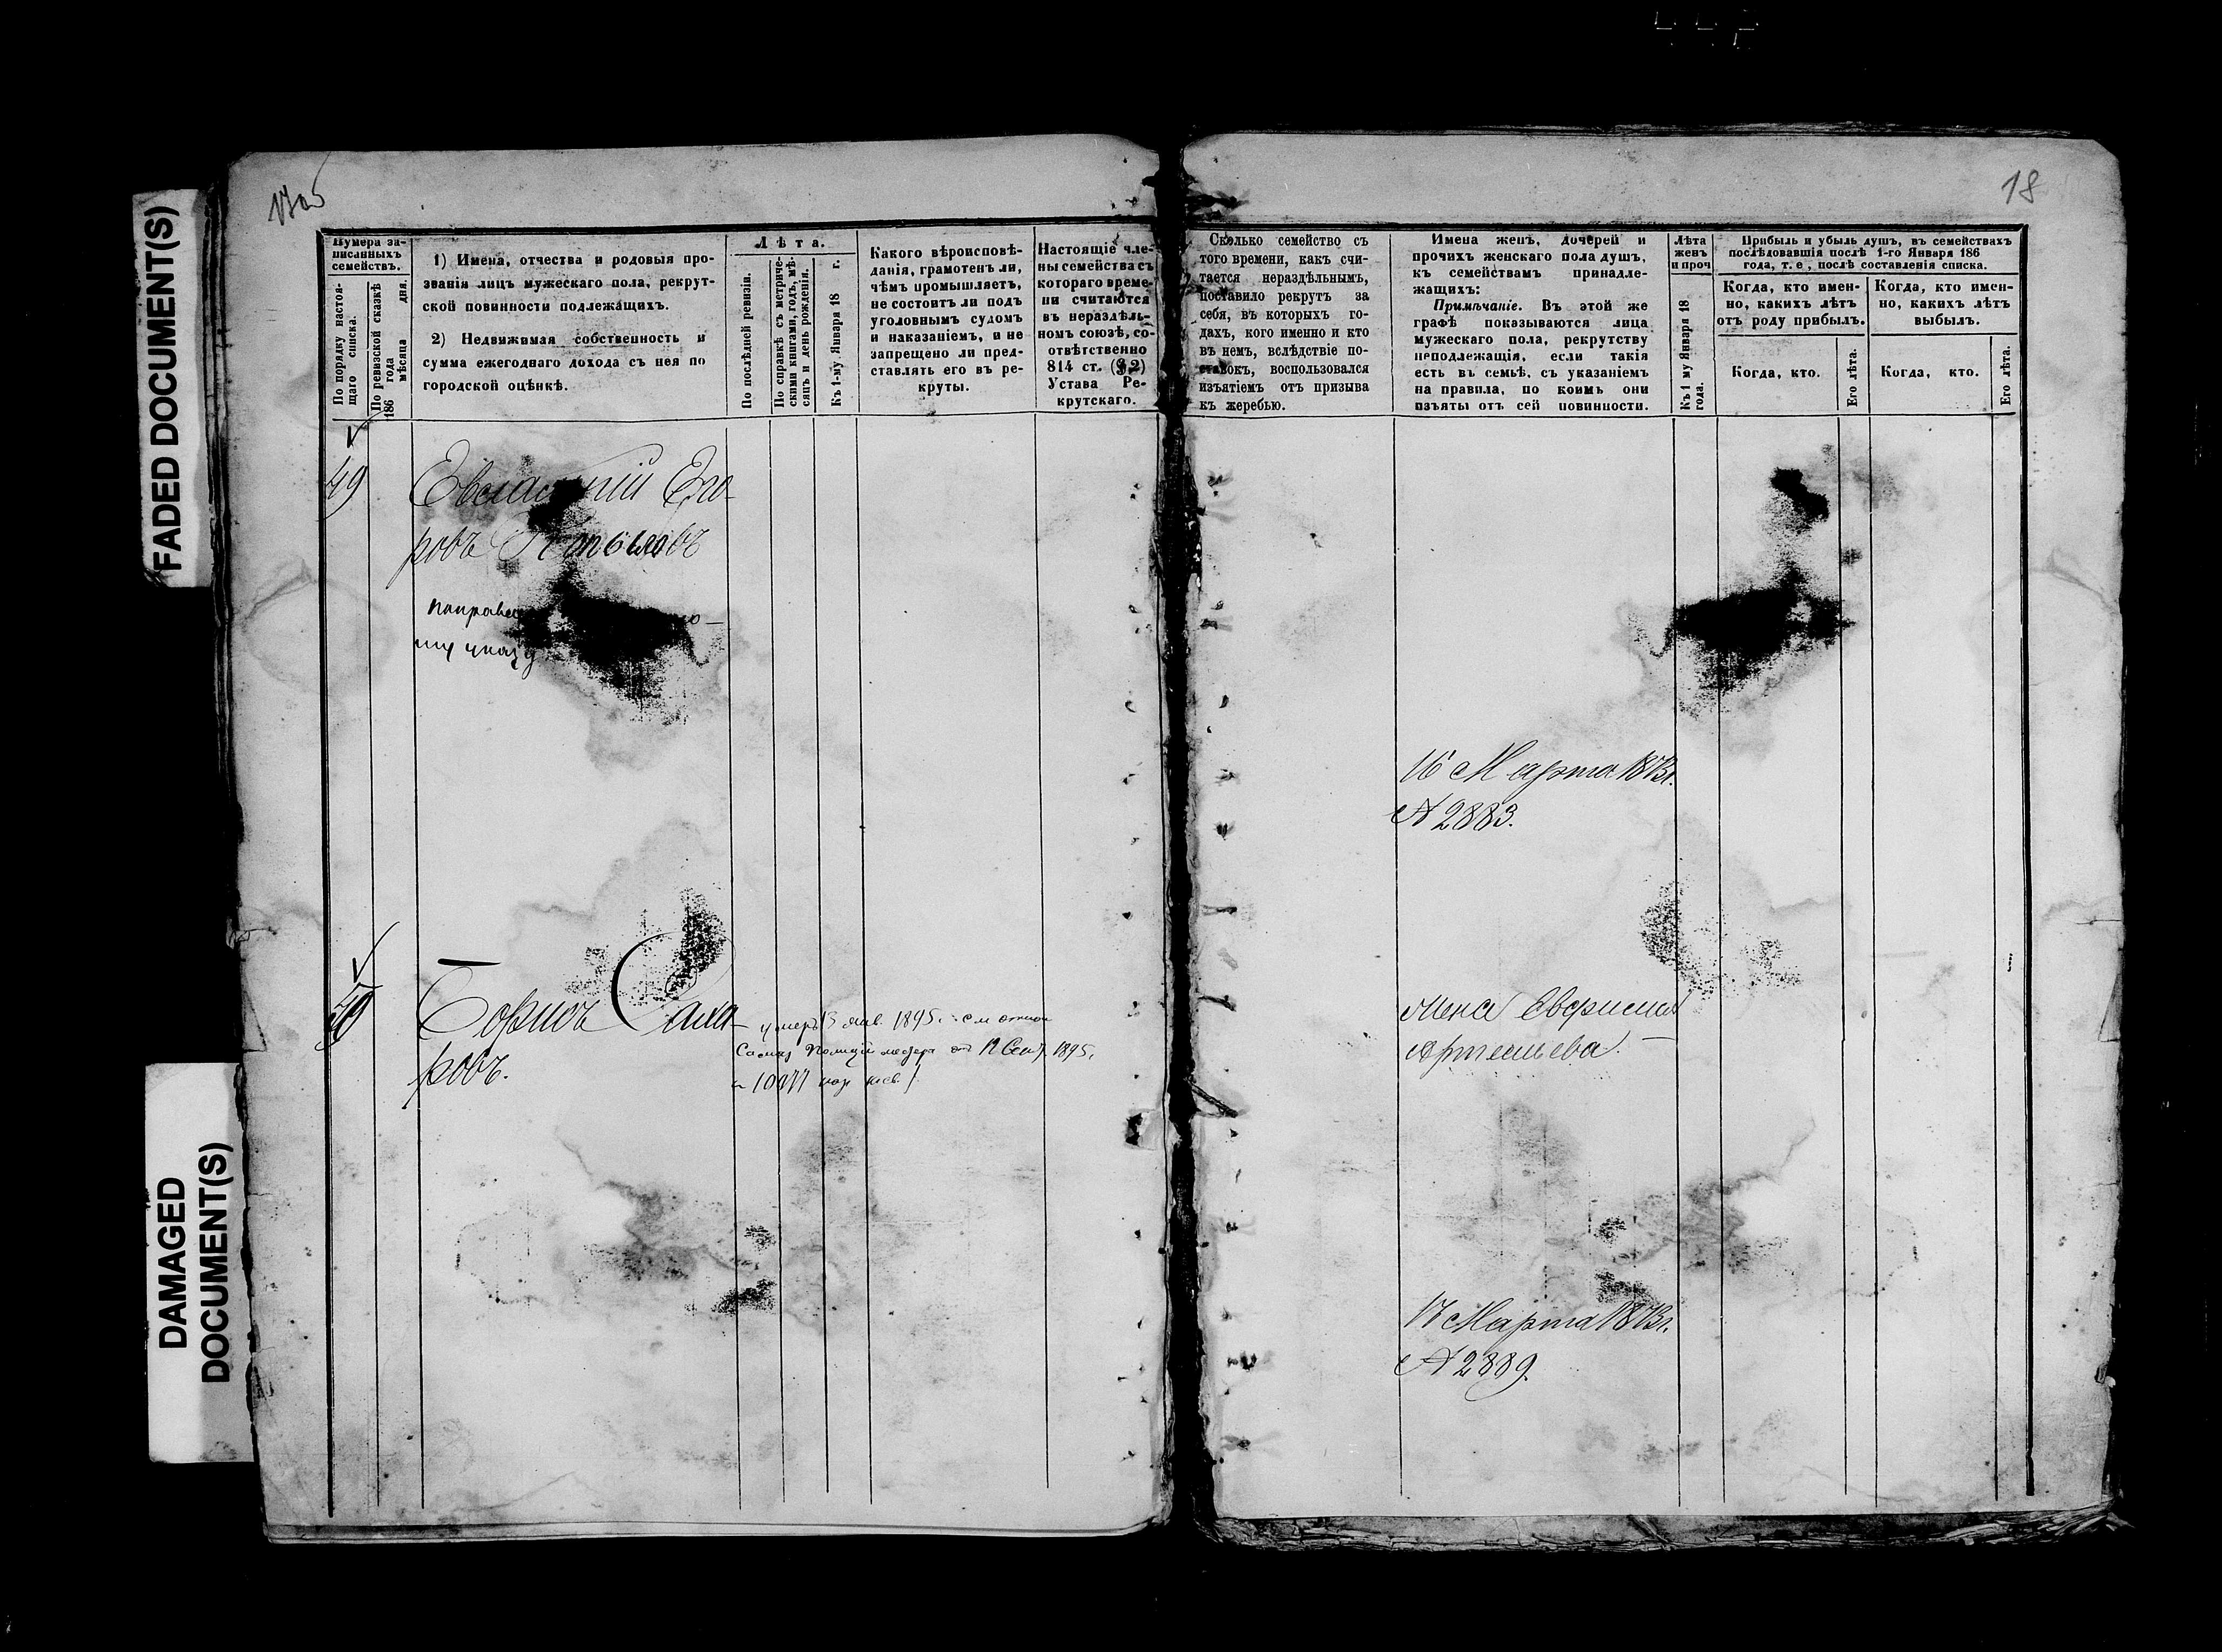 FADED DOCUMENT(S)
DAMAGED
DOCUMENT(S)
18
Нумера за-
писанныхъ
семействъ.
По порядку настоя-
щаго списка.
По ревизской сказкѣ
186 года
мѣсяца дня.
1) Имена, отчества и родовыя про-
званія лицъ мужескаго пола, рекрут-
ской повинности подлежащихъ.
2) Недвижимая собственность и
сумма ежегоднаго дохода съ нея по
городской оцѣнкѣ.
Лѣта.
По послѣдней ревизіи.
По справкѣ съ метриче-
скими книгами, годъ, мѣ-
сяцъ и день рожденія.
Къ 1-му Января 18 г.
Какого вѣроисповѣ-
данія, грамотенъ ли,
чѣмъ промышляетъ,
не состоитъ ли подъ
уголовнымъ судомъ
и наказаніемъ, и не
запрещено ли пред-
ставлять его въ ре-
круты.
Настоящіе чле-
ны семейства съ
котораго време-
ни считаются
въ нераздѣль-
номъ союзѣ, со-
отвѣтственно
814 ст. (§ 2)
Устава Ре-
крутскаго.
Сколько семейство съ
того времени, какъ счи-
тается нераздѣльнымъ,
поставило рекрутъ за
себя, въ которыхъ го-
дахъ, кого именно и кто
въ немъ, вслѣдствіе по-
ставокъ, воспользовался
изъятіемъ отъ призыва
къ жеребью.
Имена женъ, дочерей и
прочихъ женскаго пола душъ,
къ семействамъ принадле-
жащихъ:
Примѣчаніе. Въ этой же
графѣ показываются лица
мужескаго пола, рекрутству
неподлежащія, если такія
есть въ семьѣ, съ указаніемъ
на правила, по коимъ они
изъяты отъ сей повинности.
Лѣта
женъ
и проч
Къ 1 му Января 18
года.
Прибыль и убыль душъ, въ семействахъ
послѣдовавшія послѣ 1-го Января 186
года, т. е, послѣ составленія списка.
Когда, кто имен-
но, какихъ лѣтъ
отъ роду прибылъ.
Когда, кто.
Его лѣта.
Когда, кто имен-
но, какихъ лѣтъ
выбылъ.
Когда, кто.
Его лѣта.
49
Его-
ровъ
16 Марта 1873г.
№ 2883.
50
Борисъ Саха-
ровъ.
умеръ 13 1895.
12 Сент. 1895.
Артемьева.
17 Марта 1873г.
№ 2889.